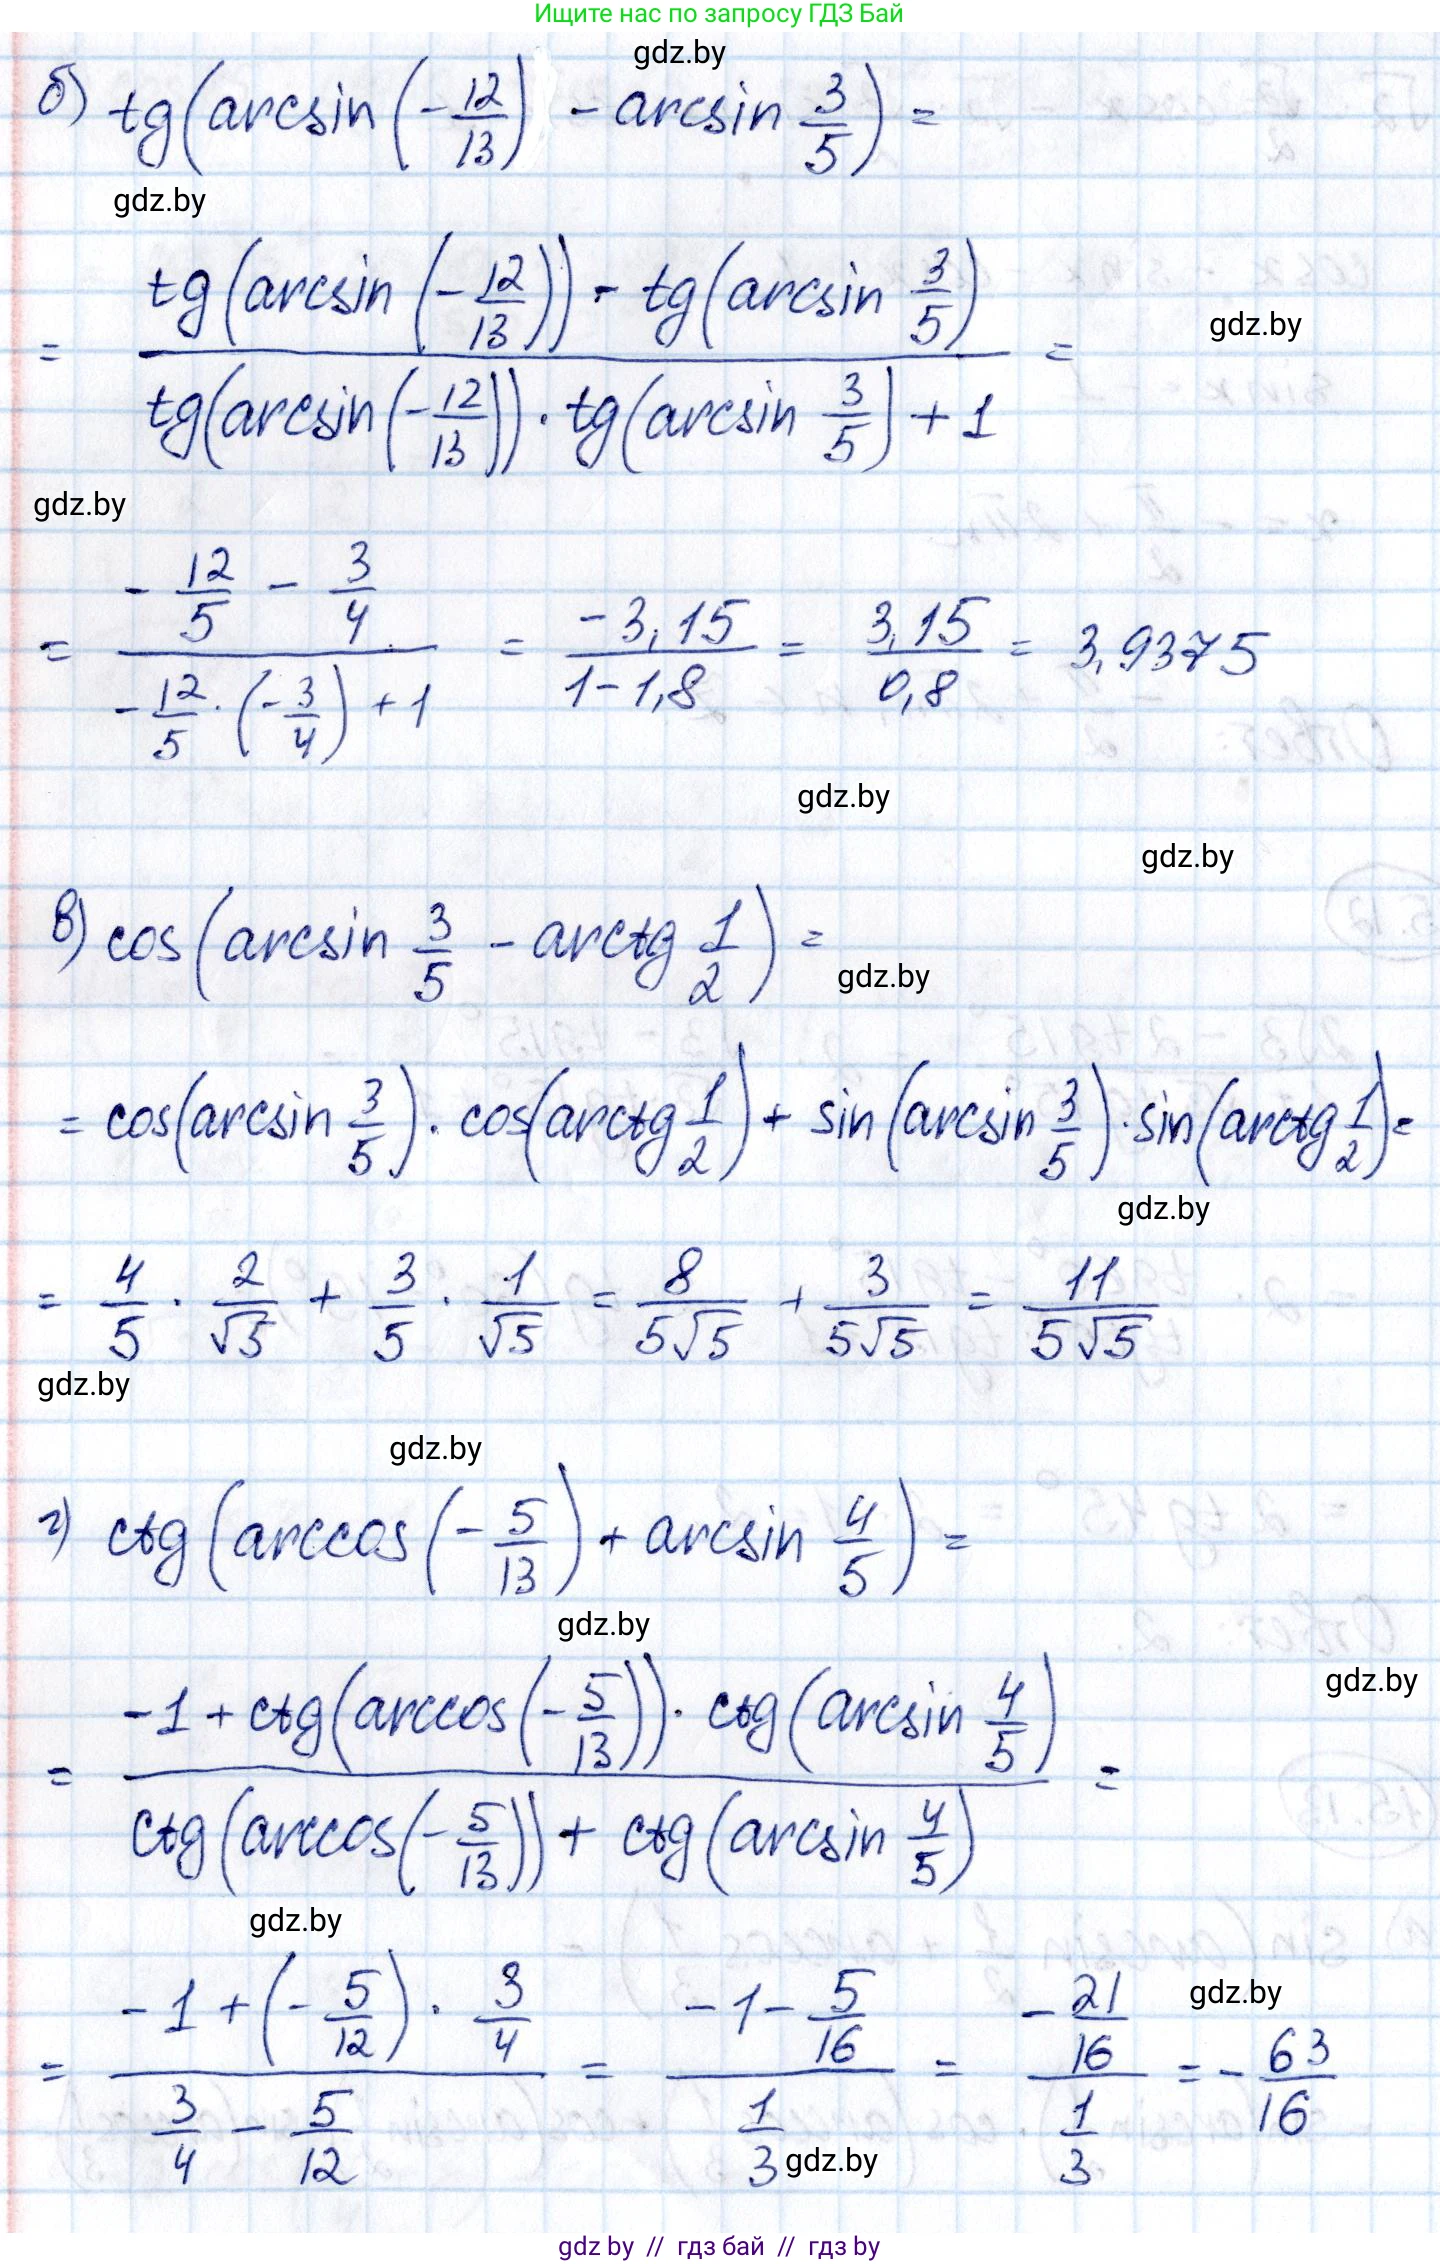 Ищите нас по запросу ГДЗ Бай
gdz.by
б) tg(arcsin(-12/13) - arcsin 3/5) =
gdz.by
= (tg(arcsin(-12/13)) - tg(arcsin 3/5)) / (tg(arcsin(-12/13)) · tg(arcsin 3/5) + 1) =
gdz.by
gdz.by
= (-12/5 - 3/4) / (-12/5 · (-3/4) + 1) = -3,15 / 1-1,8 = 3,15 / 0,8 = 3,9375
gdz.by
gdz.by
в) cos(arcsin 3/5 - arctg 1/2) =
gdz.by
= cos(arcsin 3/5) · cos(arctg 1/2) + sin(arcsin 3/5) · sin(arctg 1/2) =
gdz.by
= 4/5 · 2/√5 + 3/5 · 1/√5 = 8/5√5 + 3/5√5 = 11/5√5
gdz.by
gdz.by
г) ctg(arccos(-5/13) + arcsin 4/5) =
gdz.by
gdz.by
= (-1 + ctg(arccos(-5/13)) · ctg(arcsin 4/5)) / (ctg(arccos(-5/13)) + ctg(arcsin 4/5)) =
gdz.by
gdz.by
= (-1 + (-5/12) · 3/4) / (3/4 - 5/12) = (-1 - 5/16) / (1/3) = (-21/16) / (1/3) = -63/16
gdz.by
gdz.by // гдз бай // гдз by